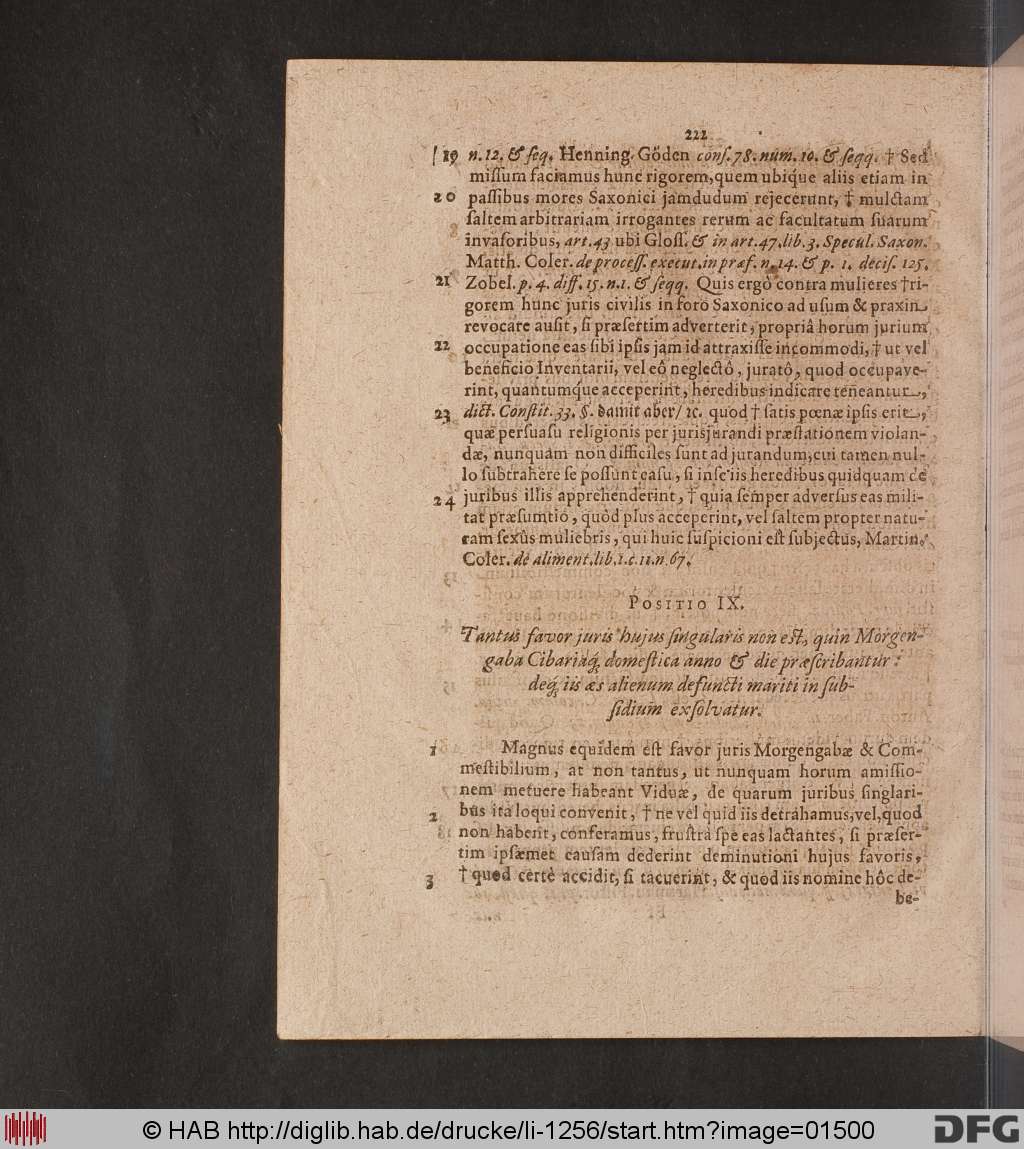 222
19 n. 12. & ſeq. Henning. Gôden conſ. 78. num. 10. & ſeqq. † Sed
miſſum faciamus hunc rigorem, quem ubique aliis etiam in
20 paſſibus mores Saxonici jamdudum rejecerunt, † mulctam
ſaltem arbitrariam irrogantes rerum ac facultatum ſuarum
invaſoribus, art. 43 ubi Gloſſ. & in art. 47. lib. 3. Specul. Saxon.
Matth. Coler. de proceſſ. execut. in præf. n. 14. & p. 1. deciſ. 125.
21 Zobel. p. 4. diff. 15. n. 1. & ſeqq. Quis ergò contra mulieres † ri-
gorem hunc juris civilis in foro Saxonico ad uſum & praxin
revocare auſit, ſi præſertim adverterit, propriâ horum jurium
22 occupatione eas ſibi ipſis jam id attraxiſſe incommodi, † ut vel
beneficio Inventarii, vel eô neglectô, juratô, quod occupave-
rint, quantumque acceperint, heredibus indicare teneantur,
23 dict. Conſtit. 33. §. damit aber/ ꝛc. quod † ſatis pœnæ ipſis erit,
quæ perſuaſu religionis per jurisjurandi præſtationem violan-
dæ, nunquam non difficiles ſunt ad jurandum, cui tamen nul-
lo ſubtrahere ſe poſſunt caſu, ſi inſciis heredibus quidquam de
24 juribus illis apprehenderint, † quia ſemper adverſus eas mili-
tat præſumtio, quòd plus acceperint, vel ſaltem propter natu-
ram ſexûs muliebris, qui huic ſuſpicioni eſt ſubjectus, Martin.
Coler. de aliment. lib. 1. c. 11. n. 67.
POSITIO IX.
Tantus favor juris hujus ſingularis non eſt, quin Morgen-
gaba Cibariaq́; domeſtica anno & die præſcribantur:
deq́; iis æs alienum defuncti mariti in ſub-
ſidium exſolvatur.
1 Magnus equidem eſt favor juris Morgengabæ & Com-
meſtibilium, at non tantus, ut nunquam horum amiſſio-
nem metuere habeant Viduæ, de quarum juribus ſinglari-
2 bus ita loqui convenit, † ne vel quid iis detrahamus, vel, quod
non habent, conferamus, fruſtra ſpe eas lactantes, ſi præſer-
tim ipſæmet cauſam dederint deminutioni hujus favoris,
3 † quod certè accidit, ſi tacuerint, & quod iis nomine hôc de-
be-
© HAB http://diglib.hab.de/drucke/li-1256/start.htm?image=01500
DFG